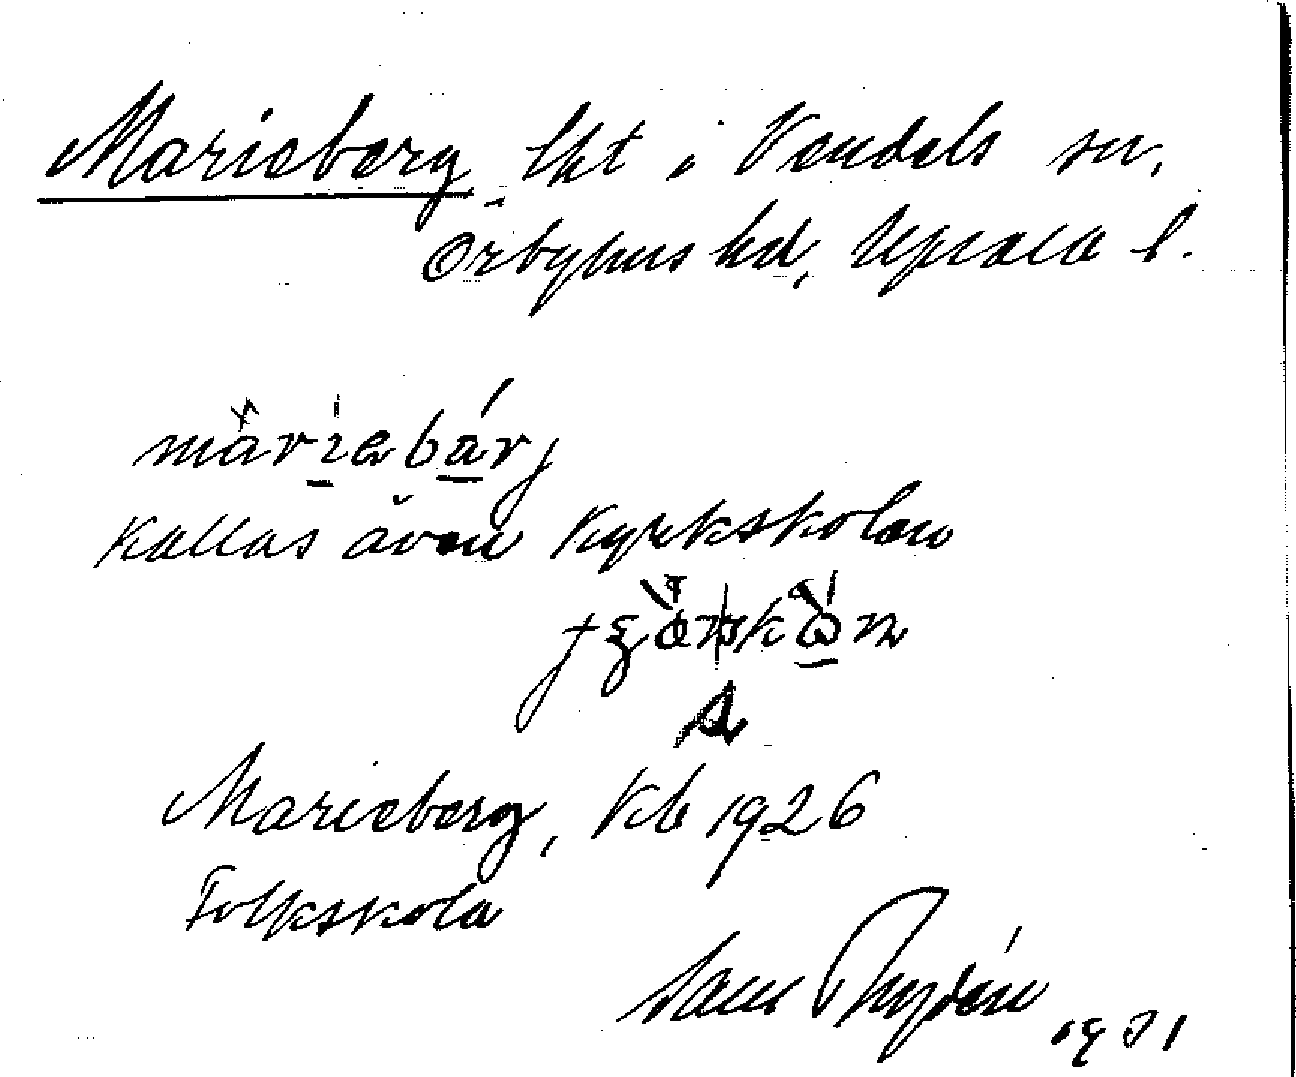 Marieberg, lht i Vendels sn,
Örbyhus hd, Uppsala l.
màriebárj
Kallas även Kyrkskolan
Marieberg, Kb 1926
Folkskola
Rydén 1931